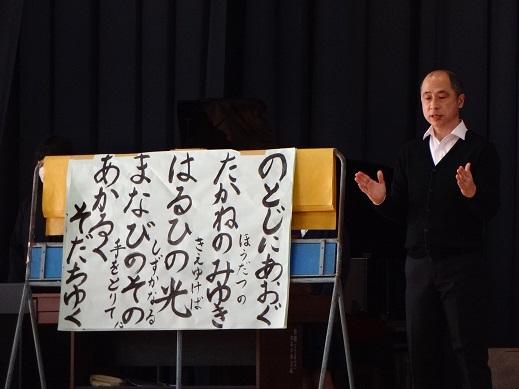 のとじにあおぐ
ほうだつの
たかねのみゆき
きえゆけば
はるひの光
しずかなる
まなびのその
手をとりて
あかるく
そだちゆく